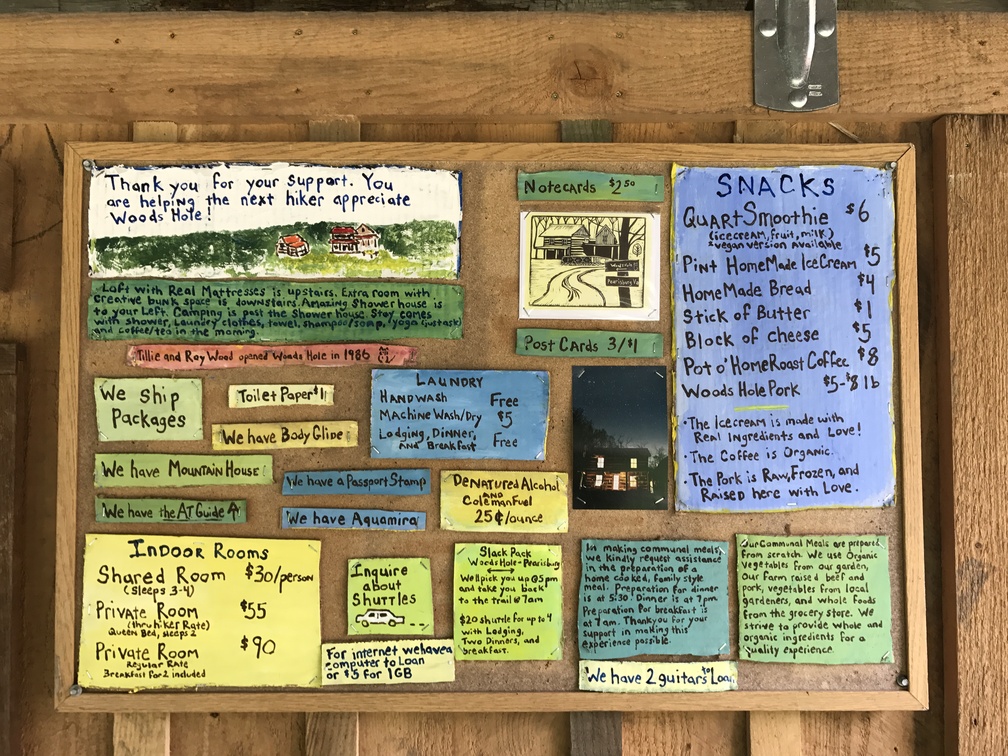 Thank you for your support. You
are helping the next hiker appreciate
Woods Hole!
Loft with Real Mattresses is upstairs. Extra room with
creative bunk space is downstairs. Amazing Shower house is
to your Left. Camping is past the Shower house. Stay comes
with shower, Laundry clothes, towel, shampoo/soap, yoga (just ask)
and coffee/tea in the morning.
Tillie and Roy Wood opened Woods Hole in 1986
We Ship
Packages
Toilet Paper $1
We have Body Glide
LAUNDRY
HANDWASH Free
MACHINE WASH/DRY $5
Lodging, DINNER,
AND Breakfast Free
We have MOUNTAIN HOUSE
We have a Passport Stamp
We have the AT Guide
We have Aquamira
DENATURED Alcohol
AND
Coleman Fuel
25¢/ounce
Notecards $2.50
Woods Hole
Pearisburg Va
Post Cards 3/$1
SNACKS
QuartSmoothie $6
(icecream, fruit, milk)
*vegan version available
Pint HomeMade IceCream $5
HomeMade Bread $4
Stick of Butter $1
Block of cheese $5
Pot o' HomeRoast Coffee $8
Woods Hole Pork $5-$8 lb
•The Icecream is made with
Real Ingredients and Love!
•The Coffee is Organic.
•The Pork is Raw, Frozen, and
Raised here with Love.
INDOOR ROOMS
Shared Room $30/person
(Sleeps 3-4)
Private Room $55
(thru hiker Rate)
Queen Bed, sleeps 2
Private Room $90
Regular Rate
Breakfast for 2 included
Inquire
about
Shuttles
For internet we have a
computer to Loan
or $5 for 1GB
Slack Pack
Woods Hole Pearisburg
We'll pick you up @5pm
and take you back
to the trail @ 7am
$20 shuttle for up to 4
with Lodging,
Two Dinners, and
breakfast.
In making communal meals,
we kindly request assistance
in the preparation of a
home cooked, family style
meal. Preparation for dinner
is at 5:30. Dinner is at 7pm.
Preparation for breakfast is
at 7am. Thank you for your
support in making this
experience possible.
We have 2 guitars to Loan
Our Communal Meals are prepared
from scratch. We use Organic
vegetables from our garden,
Our farm raised beef and
pork, vegetables from local
gardeners, and whole foods
from the grocery store. We
strive to provide whole and
organic ingredients for a
quality experience.